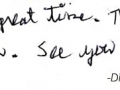 great time. T
. See you
-D